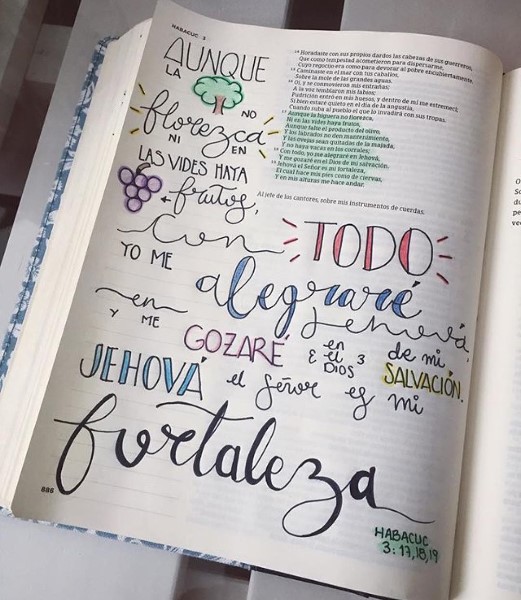 HABACUC 3
¹⁴ Horadaste con sus propios dardos las cabezas de sus guerreros,
Que como tempestad acometieron para dispersarme,
Cuyo regocijo era como para devorar al pobre encubiertamente.
¹⁵ Caminaste en el mar con tus caballos,
Sobre la mole de las grandes aguas.
¹⁶ Oí, y se conmovieron mis entrañas;
A la voz temblaron mis labios;
Pudrición entró en mis huesos, y dentro de mí me estremecí;
Si bien estaré quieto en el día de la angustia,
Cuando suba al pueblo el que lo invadirá con sus tropas.
¹⁷ Aunque la higuera no florezca,
Ni en las vides haya frutos,
Aunque falte el producto del olivo,
Y los labrados no den mantenimiento,
Y las ovejas sean quitadas de la majada,
Y no haya vacas en los corrales;
¹⁸ Con todo, yo me alegraré en Jehová,
Y me gozaré en el Dios de mi salvación.
¹⁹ Jehová el Señor es mi fortaleza,
El cual hace mis pies como de ciervas,
Y en mis alturas me hace andar.
Al jefe de los cantores, sobre mis instrumentos de cuerdas.
AUNQUE
LA
NO
florezca
NI EN
LAS VIDES HAYA
frutos,
Con TODO
YO ME alegraré
en Jehová,
Y ME GOZARÉ en el DIOS de mi
SALVACIÓN.
JEHOVÁ el Señor es mi
fortaleza
886
HABACUC
3:17,18,19